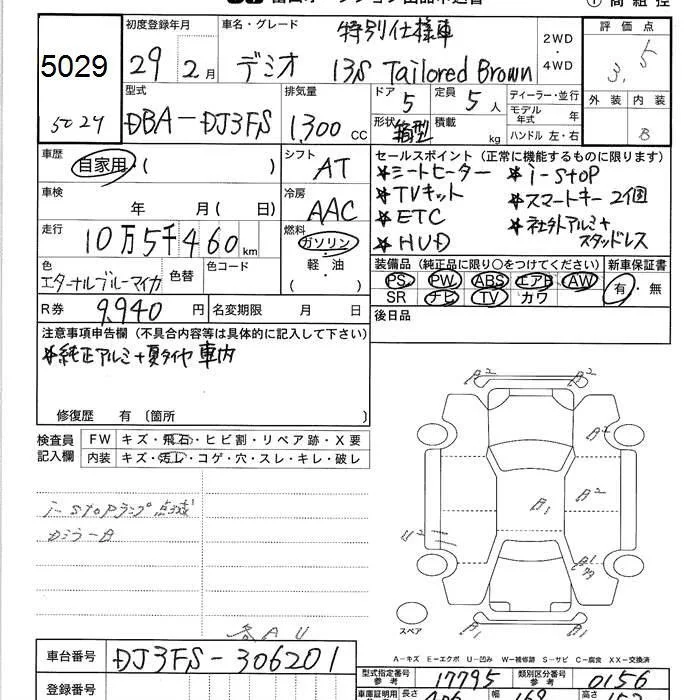 5029
5024
初度登録年月
29年2月
車名・グレード
特別仕様車
デミオ 13S Tailored Brown
2WD
・
4WD
評価点
3.5
外装 内装
B
型式
DBA-DJ3FS
排気量
1,300 CC
ドア 5
定員 5人
形状 箱型
積載 kg
ディーラー・並行
モデル年式 年
ハンドル 左・右
車歴
自家用・( )
シフト
AT
セールスポイント (正常に機能するものに限ります)
*シートヒーター *i-stop
*TVキット *スマートキー2個
*ETC *社外アルミ+
*HUD スタッドレス
車検
年 月( 日)
冷房
AAC
走行
10万5千460km
燃料
ガソリン・
軽・油
( )
色
エターナルブルーマイカ
色替
色コード
装備品 (純正品に限り○をつけてください)
PS PW ABS エアB AW
SR ナビ TV カワ
新車保証書
有・無
R券 9,940円
名変期限 月 日
後日品
注意事項申告欄 (不具合内容等は具体的に記入して下さい)
*純正アルミ+夏タイヤ 車内
修復歴 有 〔箇所 〕
検査員
記入欄
FW キズ・飛石・ヒビ割・リペア跡・X要
内装 キズ・汚レ・コゲ・穴・スレ・キレ・破レ
i-stopランプ点滅
A2
A2
A2
A2
A1
U2
A1
A1
A1
スペア
A-キズ E-エクボ U-凹み W-補修跡 S-サビ C-腐食 XX-交換済
車台番号 DJ3FS-306201
登録番号
型式指定番号
参考
17795
類別区分番号
参考
0156
車庫証明用
長さ